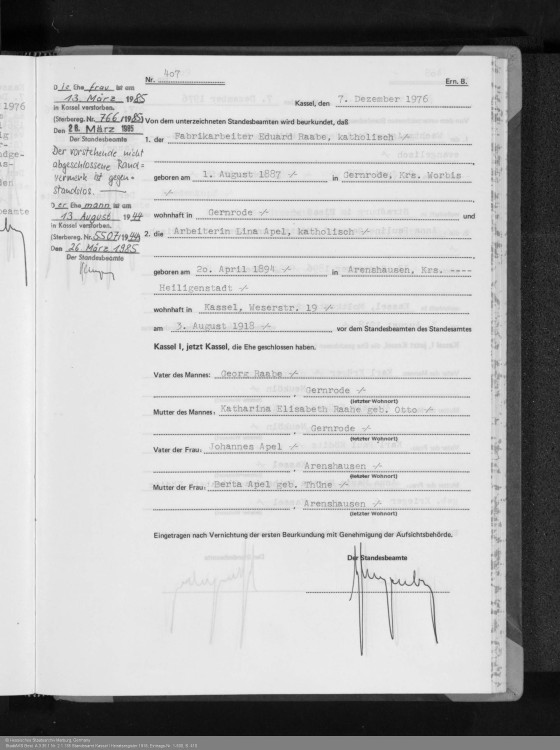 Nr. 407
Ern. B.
Kassel, den 7. Dezember 1976
Von dem unterzeichneten Standesbeamten wird beurkundet, daß
1. der Fabrikarbeiter Eduard Raabe, katholisch
geboren am 1. August 1887 in Gernrode, Krs. Worbis
wohnhaft in Gernrode und
2. die Arbeiterin Lina Apel, katholisch
geboren am 20. April 1894 in Arenshausen, Krs. ----
Heiligenstadt
wohnhaft in Kassel, Weserstr. 19
am 3. August 1918 vor dem Standesbeamten des Standesamtes
Kassel I, jetzt Kassel, die Ehe geschlossen haben.
Vater des Mannes: Georg Raabe
, Gernrode
(letzter Wohnort)
Mutter des Mannes: Katharina Elisabeth Raabe geb. Otto
, Gernrode
(letzter Wohnort)
Vater der Frau: Johannes Apel
, Arenshausen
(letzter Wohnort)
Mutter der Frau: Berta Apel geb. Thüne
, Arenshausen
(letzter Wohnort)
Eingetragen nach Vernichtung der ersten Beurkundung mit Genehmigung der Aufsichtsbehörde.
Der Standesbeamte
Die Ehefrau ist am
13. März 1985
in Kassel verstorben.
(Sterbereg. Nr. 766/1985)
Den 28. März 1985
Der Standesbeamte
Der vorstehende nicht
abgeschlossene Rand-
vermerk ist gegen-
standslos.
Der Ehemann ist am
13. August 1944
in Kassel verstorben.
(Sterbereg. Nr. 5507/1944)
Den 26. März 1985
Der Standesbeamte
1976